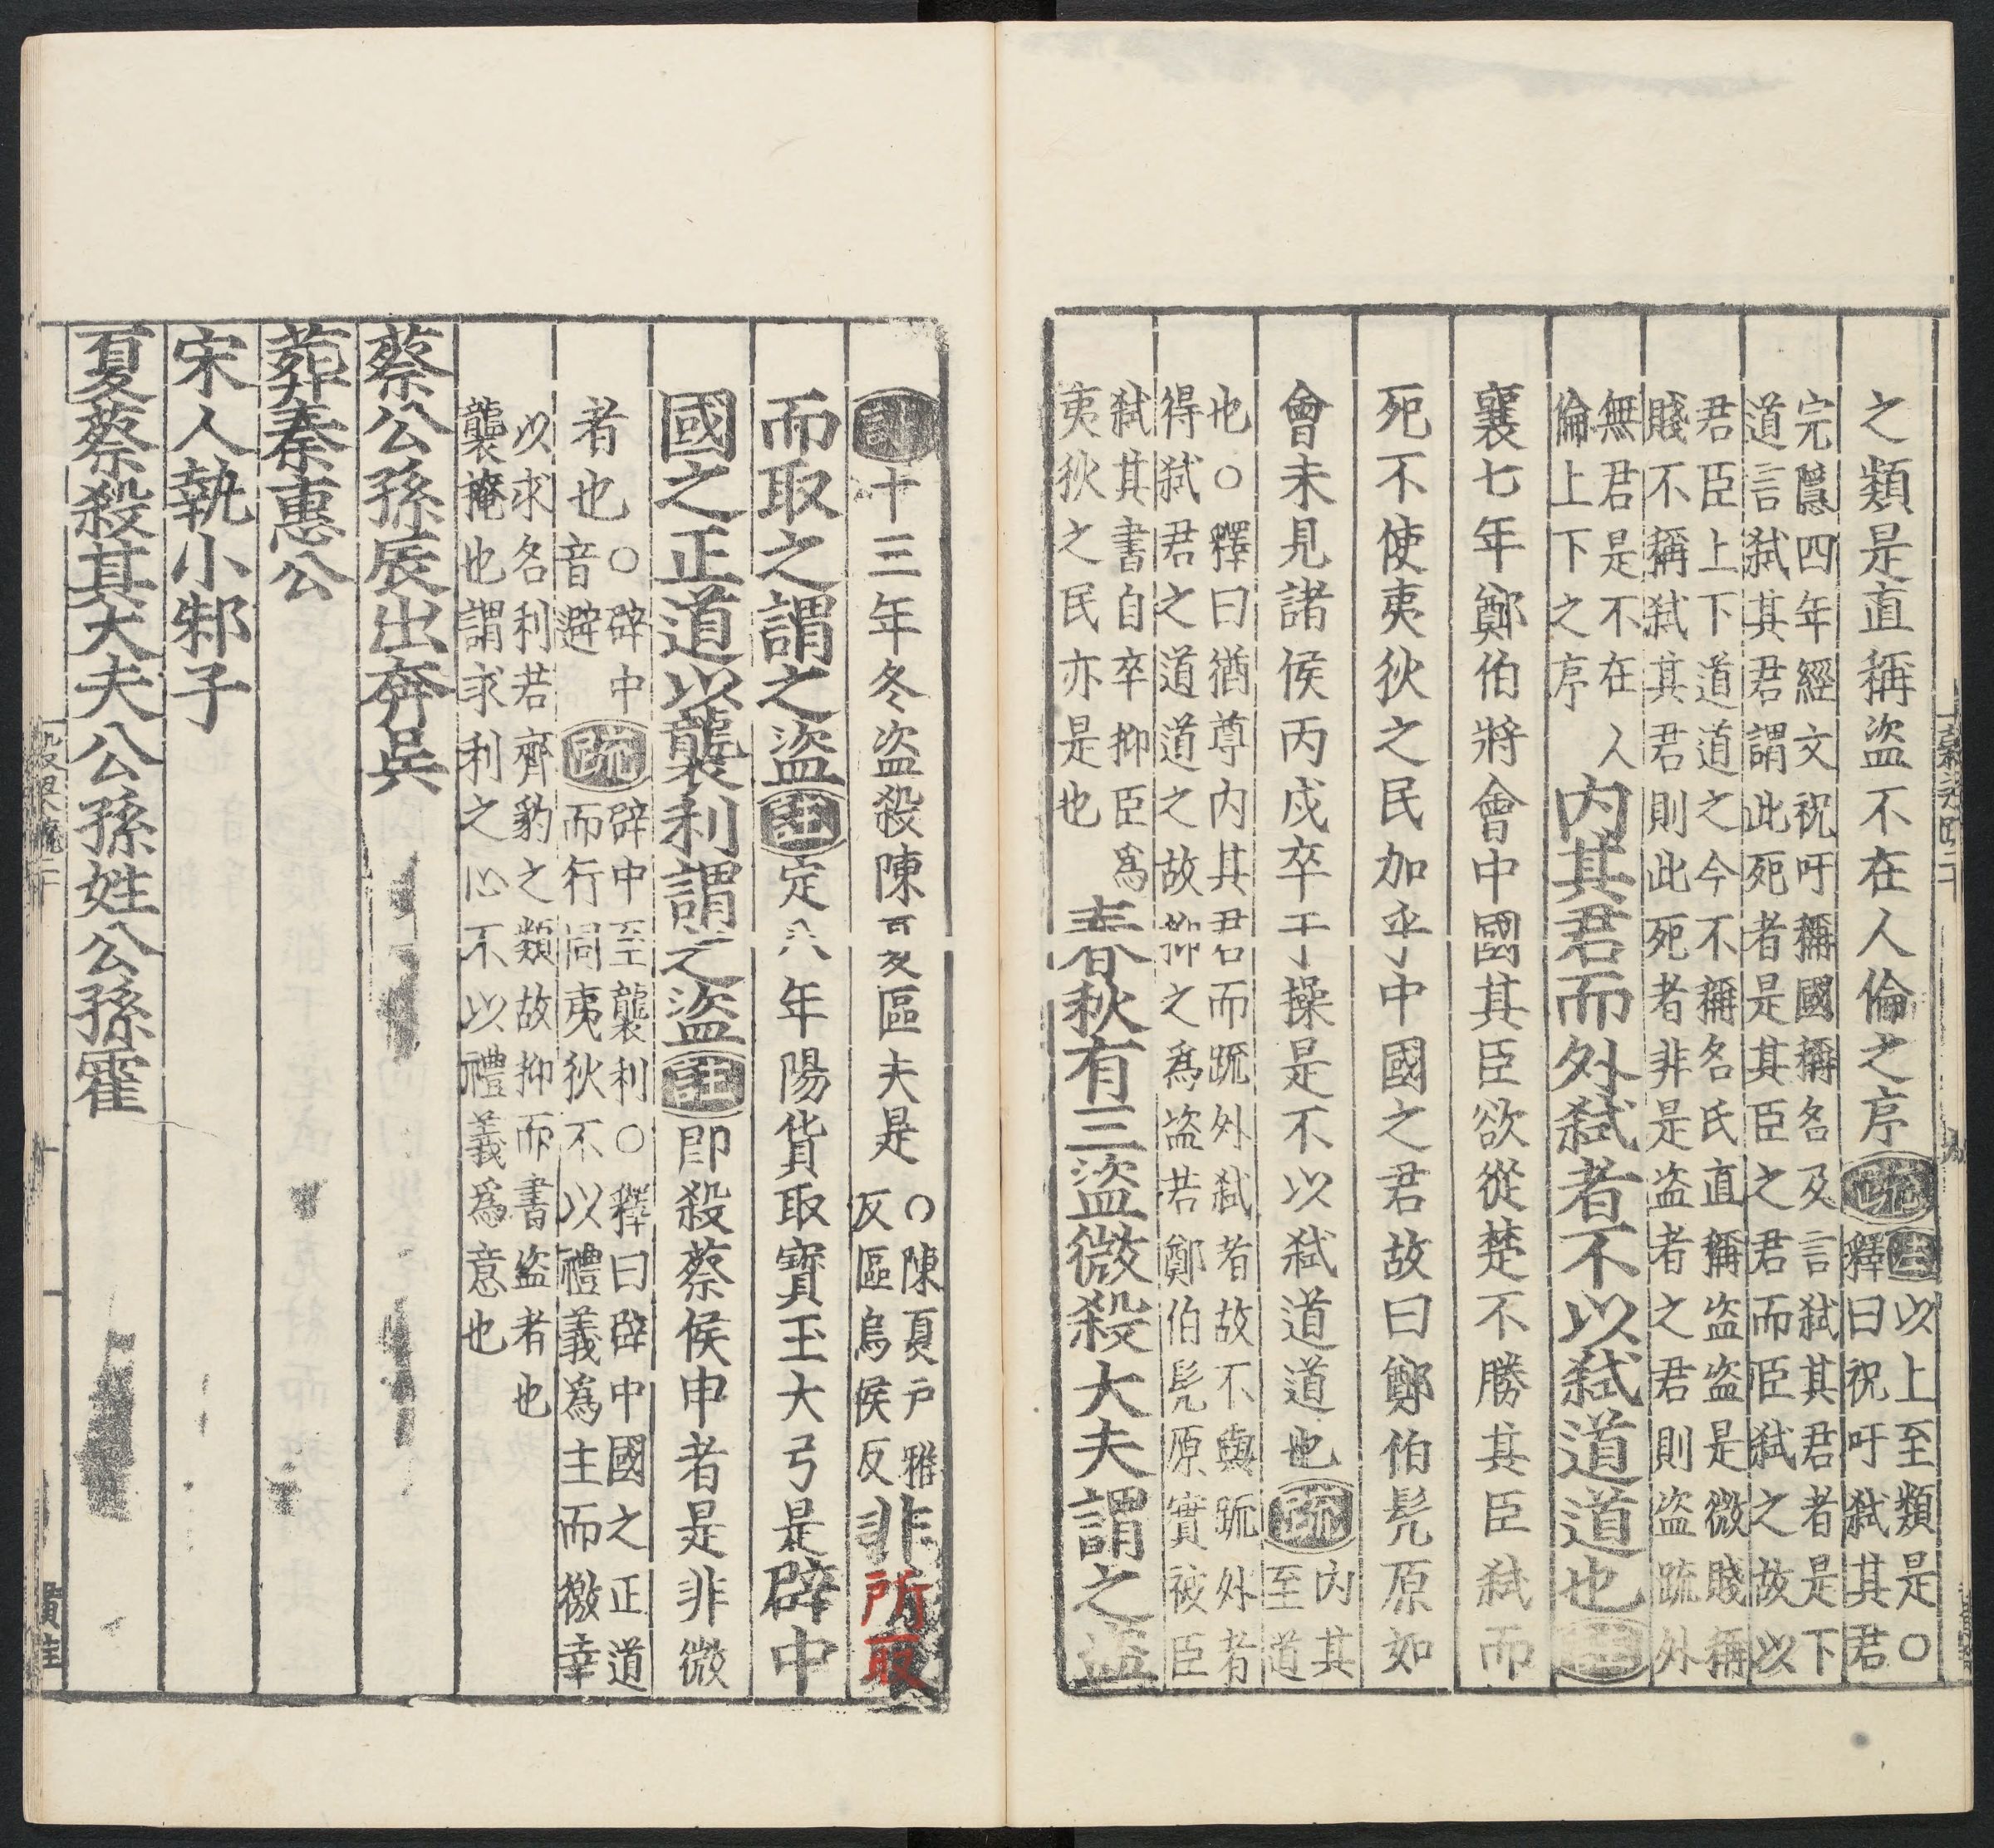 之類是直稱盜不在人倫之序疏
註以上至類是○
釋曰祝吁弒其君
完隱四年經文祝吁稱國稱名及言弒其君者是下
道言弒其君謂此死者是其臣之君而臣弒之故以
君臣上下道道之今不稱名氏直稱盜盜是微賤稱
賤不稱弒其君則此死者非是盜者之君則盜疏外
無君是不在人
倫上下之序
內其君而外弒者不以弒道道也註
襄七年鄭伯將會中國其臣欲從楚不勝其臣弒而
死不使夷狄之民加乎中國之君故曰鄭伯髡原如
會未見諸侯丙戌卒于操是不以弒道道也疏
內其
至道
也○釋曰猶尊內其君而疏外弒者故不與疏外者
得弒君之道道之故抑之為盜若鄭伯髡原實被臣
弒其書自卒抑臣為
夷狄之民亦是也
春秋有三盜微殺大夫謂之盜
註十三年冬盜殺陳夏區夫是
○陳夏戶雅
反區烏侯反
非所取
而取之謂之盜註定八年陽貨取寶玉大弓是辟中
國之正道以襲利謂之盜註即殺蔡侯申者是非微
者也
○辟中
音避
疏
辟中至襲利○釋曰辟中國之正道
而行同夷狄不以禮義為主而徼幸
以求名利若齊豹之類故抑而書盜者也
襲掩也謂求利之心不以禮義為意也
蔡公孫辰出奔吳
葬秦惠公
宋人執小邾子
夏蔡殺其大夫公孫姓公孫霍